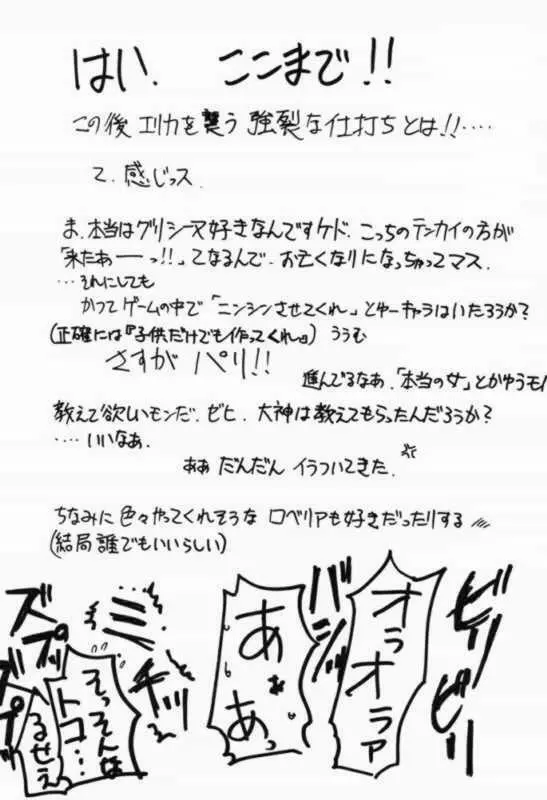 はい、ここまで!!
この後エリカを襲う強裂な仕打ちとは!!‥‥
て、感じっス.
ま、本当はグリシーヌ好きなんですケド、こっちのテンカイの方が
「来たあーっ!!」てなるんで、お亡くなりになっちゃってマス.
…それにしても
かつてゲームの中で「ニンシンさせてくれ」とゆーキャラはいたろうか?
(正確には『子供だけでも作ってくれ』) ううむ
さすがパリ!!
進んでるなあ、「本当の女」とかゆうモノ
教えて欲しいモンだ、ゼヒ、大神は教えてもらったんだろうか?
‥‥いいなあ.
ああ だんだん イラついてきた.
ちなみに色々やってくれそうな ロベリアも好きだったりする
(結局誰でもいいらしい)
ビリ
ビリ
オラオラァ
バシ
あぁあっ
ズプッ
ズプッ
そっそんなトコ…
るせえ